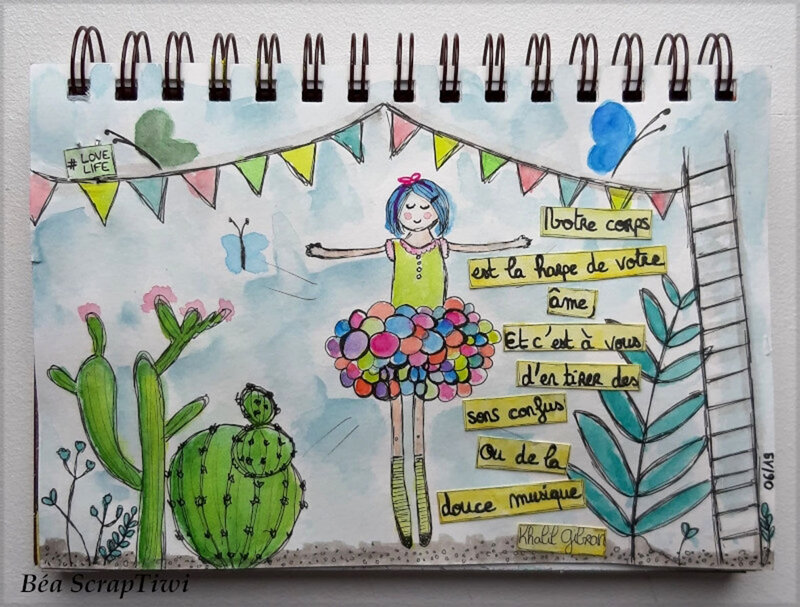 # LOVE
LIFE
Votre corps
est la harpe de votre
âme,
Et c'est à vous
d'en tirer des
sons confus
ou de la
douce musique
Khalil Gibran
Béa ScrapTiwi